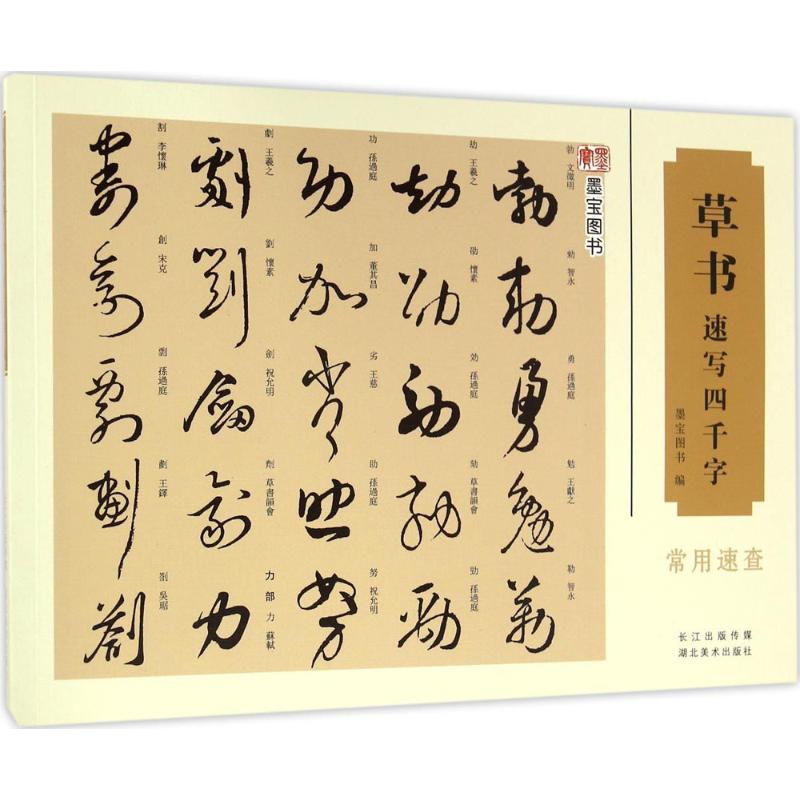 草书
速写四千字
墨宝图书 编
常用速查
长江出版传媒
湖北美术出版社
墨宝
墨宝图书
勃 文徵明
勅 智永
勇 孫過庭
勉 王獻之
勒 智永
劫 王羲之
劭 懷素
効 孫過庭
勑 草書韻會
勁 孫過庭
功 孫過庭
加 董其昌
劣 王慈
助 孫過庭
努 祝允明
劇 王羲之
劉 懷素
劍 祝允明
劑 草書韻會
力部 力 蘇軾
割 李懷琳
創 宋克
剽 孫過庭
劃 王鐸
劄 吳琚